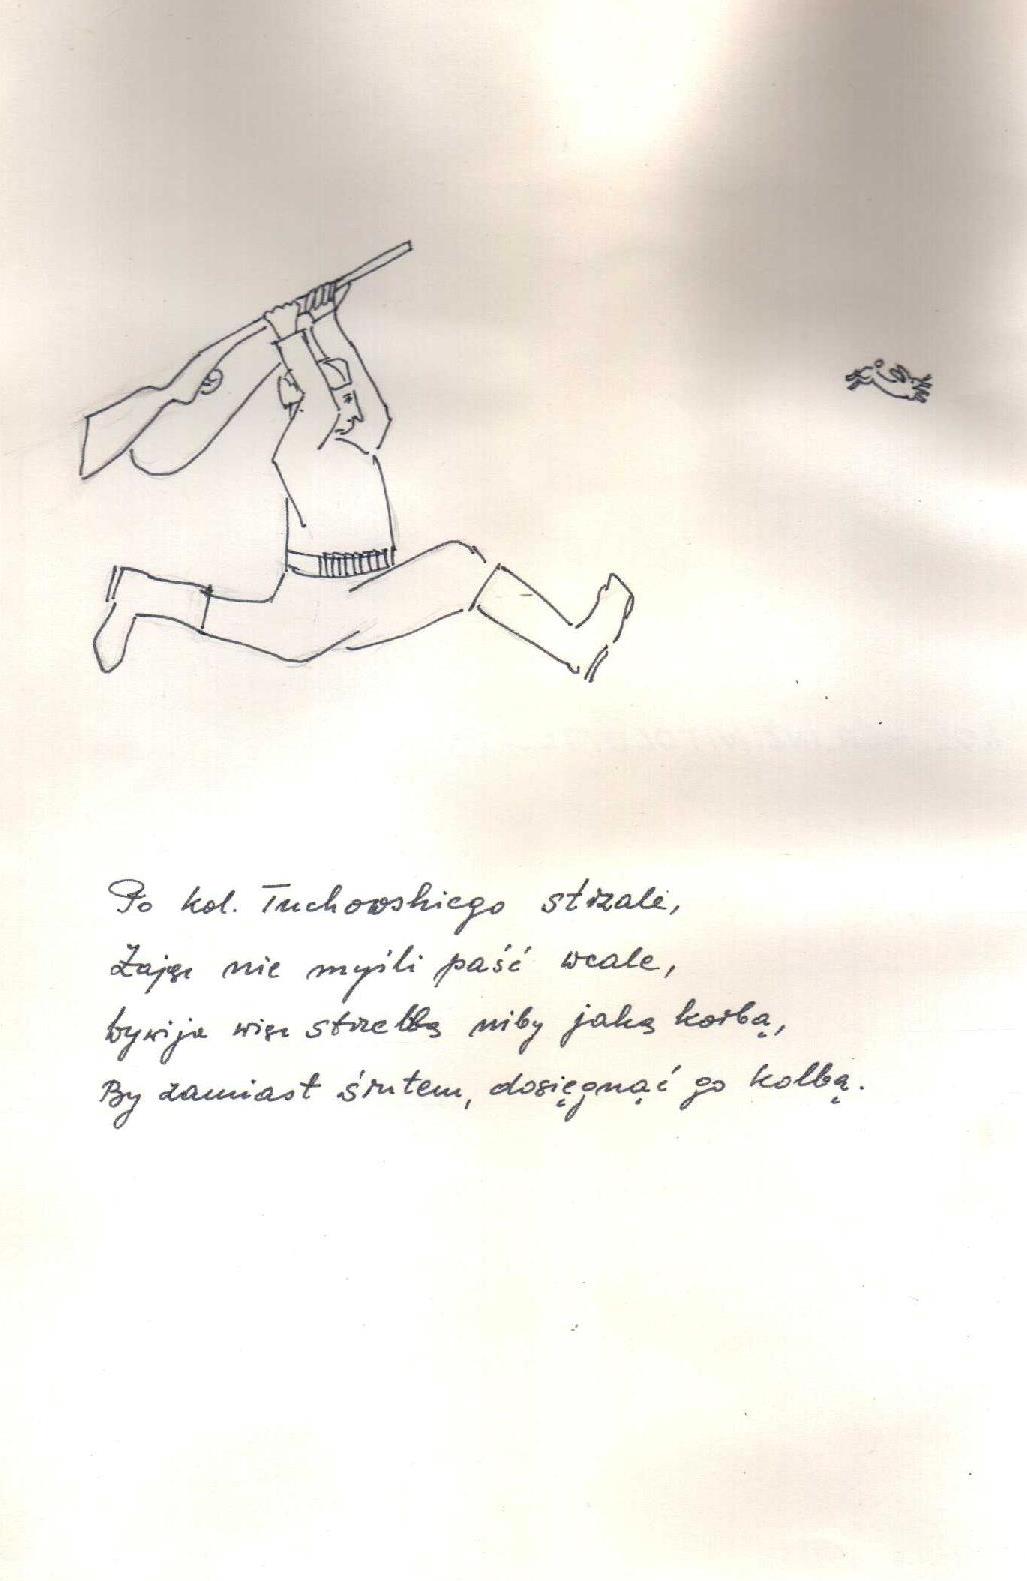 Po kol. Tuchowskiego strzale,
Zając nie myśli paść wcale,
Wywija więc strzelbą niby jaką korbą,
By zamiast śrutem, dosięgnąć go kolbą.